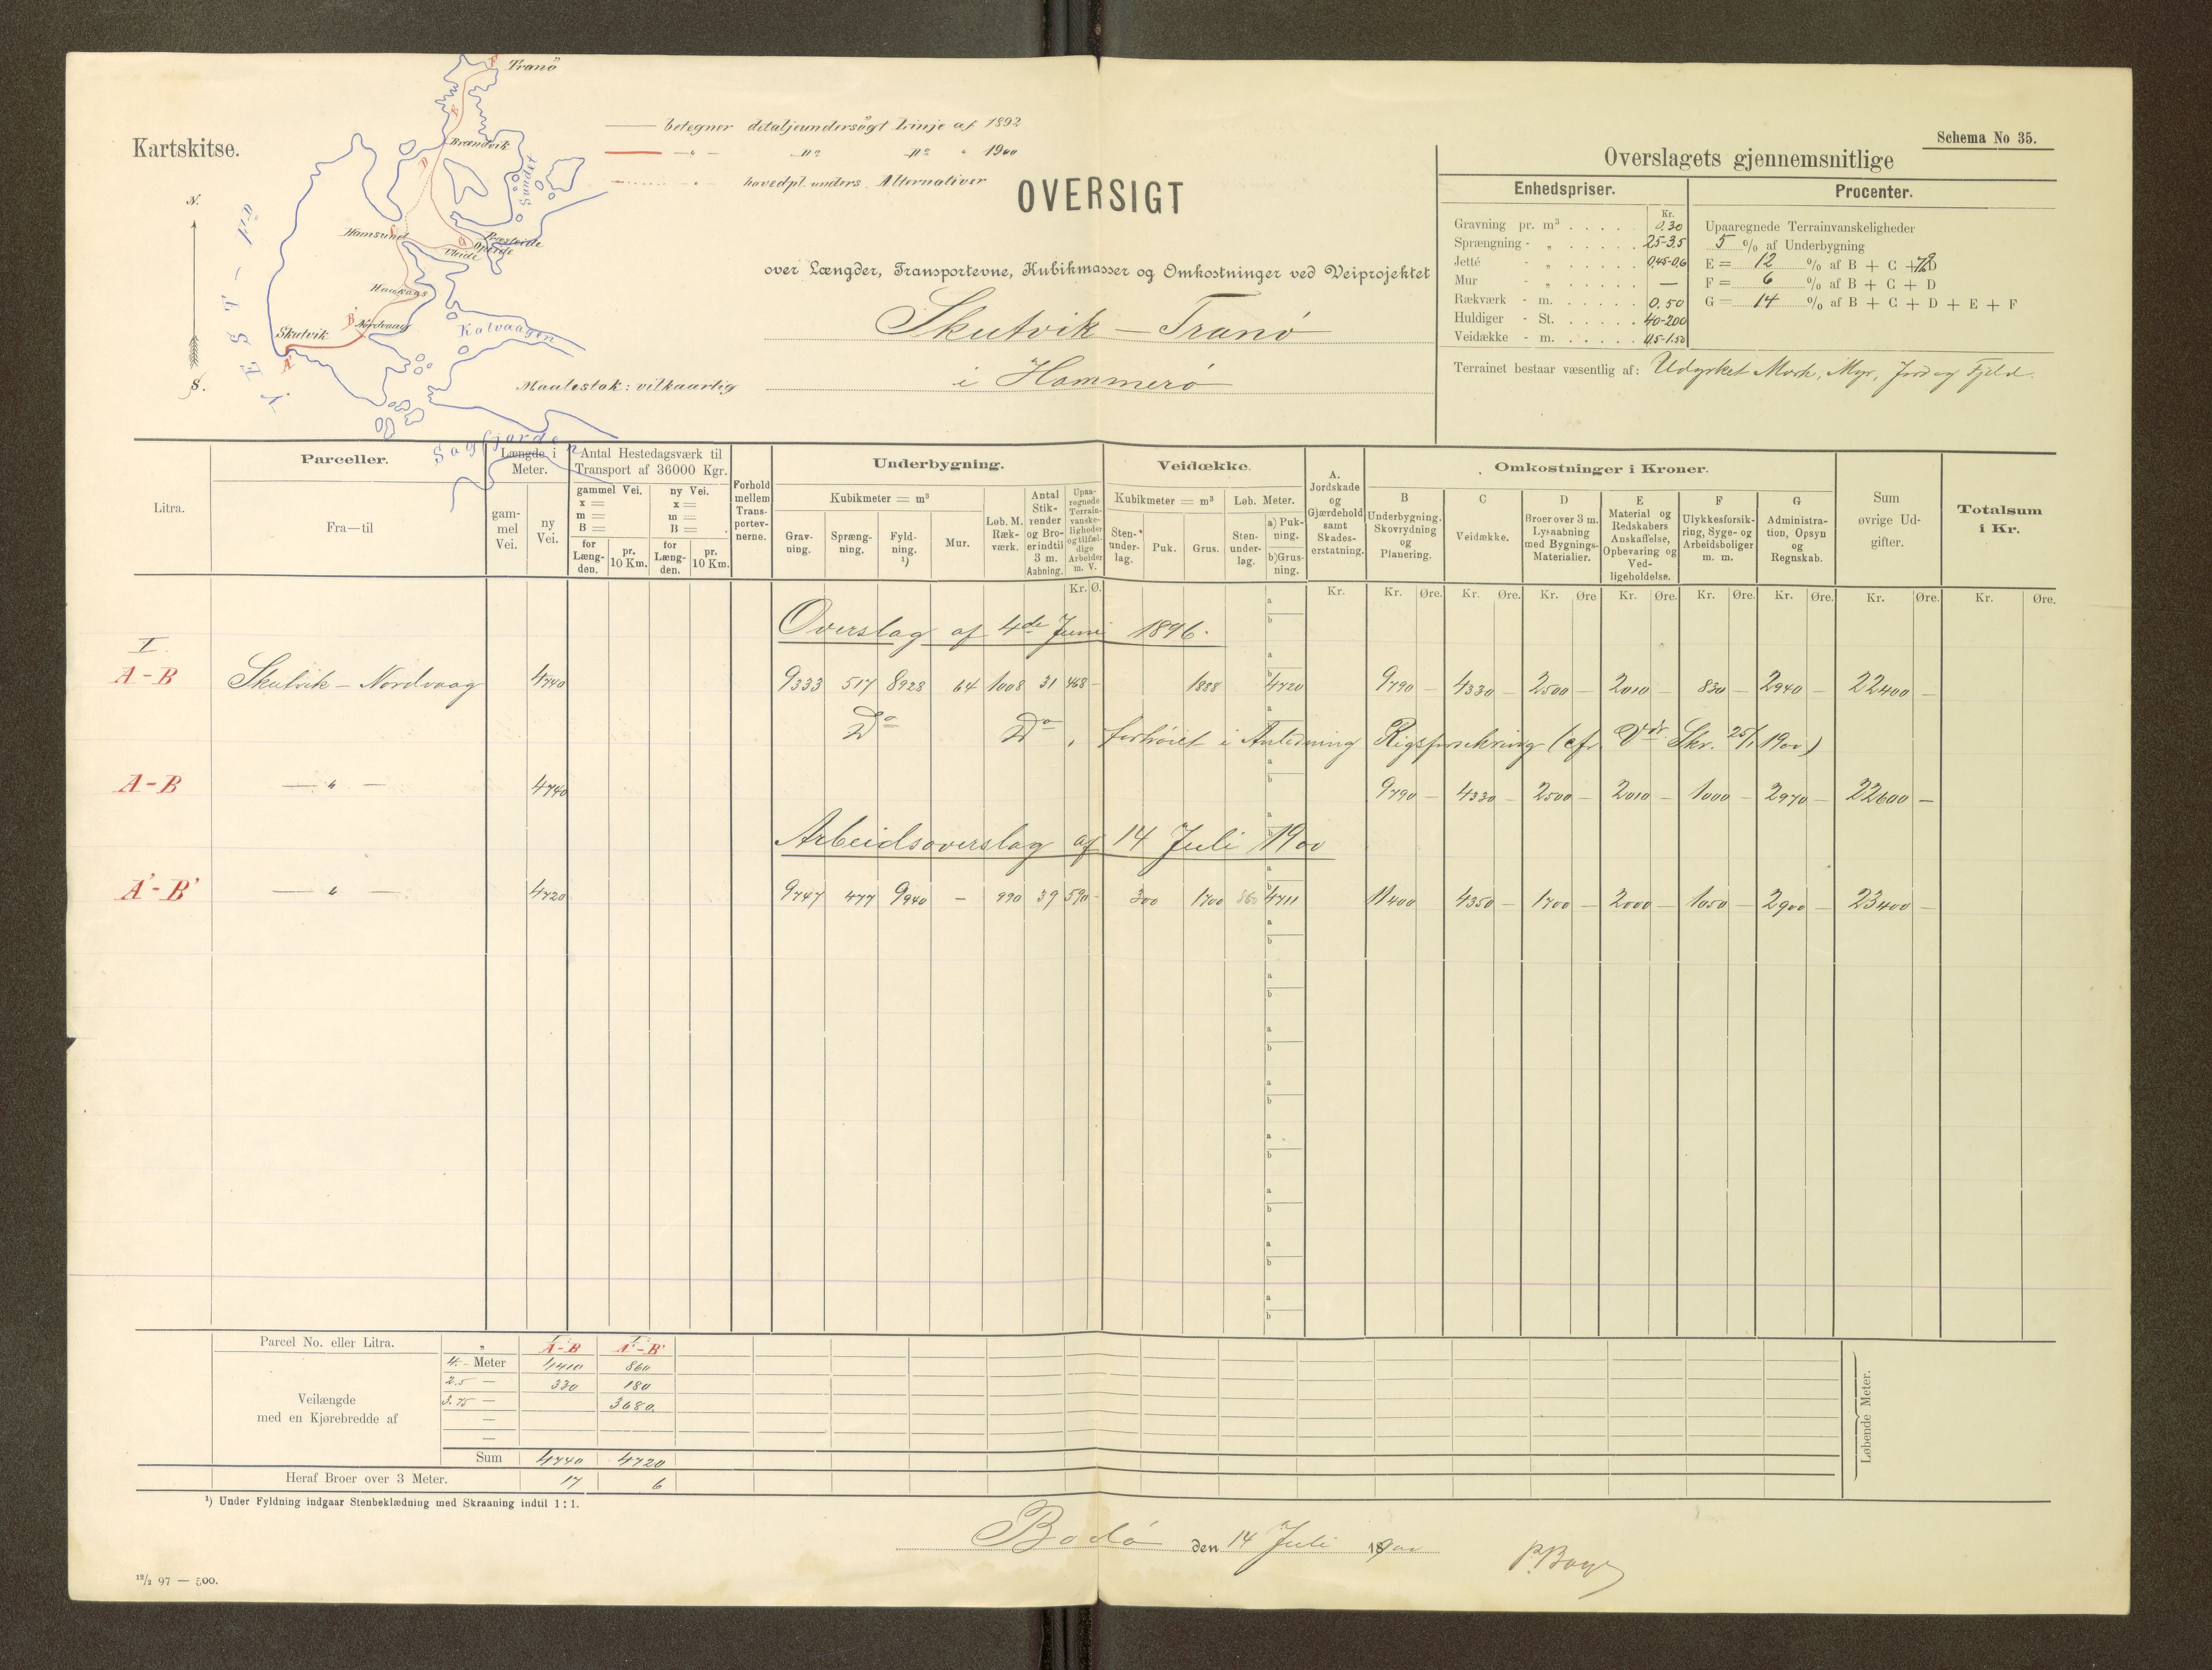 Kartskitse.
N.
S.
VEST-FJD
Tranö
Brændvik
Sundet
Hamsund
Presteide
Opeide
Vleide
Haukaas
Nordvaag
Skutvik
Kalvaagen
Sagfjorden
A' B' C D E F G
Maalestok: vilkaarlig
—— betegner detaljeundersögt Linje af 1892
—— — " — —"— Dº Dº " 1900
—··— " hovedpl. unders. Alternativer
OVERSIGT
over Længder, Transportevne, Kubikmasser og Omkostninger ved Veiprojektet
Skutvik — Tranö
i Hammerö
Schema No 35.
Overslagets gjennemsnitlige
Enhedspriser.
Kr.
Gravning pr. m³ . . . . . 0.30
Sprængning - „ . . . . . . 2.5-3.5
Jetté - „ . . . . . . 0.45-0.6
Mur - „ . . . . . . —
Rækværk - m. . . . . . 0.50
Huldiger - St. . . . . . 40-200
Veidække - m. . . . . . 0.5-1.50
Procenter.
Upaaregnede Terrainvanskeligheder
5 % af Underbygning
E = 12 % af B + C + D
F = 6 % af B + C + D
G = 14 % af B + C + D + E + F
Terrainet bestaar væsentlig af: Udyrket Mark, Myr, Jord og Fjeld.
Litra.
Parceller.
Fra—til
Længde i Meter.
gammel Vei.
ny Vei.
Antal Hestedagsværk til Transport af 36000 Kgr.
gammel Vei.
x =
m =
B =
ny Vei.
x =
m =
B =
for Længden.
pr. 10 Km.
for Længden.
pr. 10 Km.
Forhold mellem Transportevnerne.
Underbygning.
Kubikmeter = m³
Gravning.
Sprængning.
Fyldning. ¹)
Mur.
Løb. M. Rækværk.
Antal Stikrender og Broer indtil 3 m. Aabning.
Upaaregnede Terrainvanskeligheder og tilfældige Arbeider m. V.
Kr. Ø.
Veidække.
Kubikmeter = m³
Stenunderlag.
Puk.
Grus.
Løb. Meter.
Stenunderlag.
a) Pukning.
b) Grusning.
A. Jordskade og Gjærdehold samt Skadeserstatning.
Kr.
Omkostninger i Kroner.
B Underbygning. Skovrydning og Planering.
C Veidække.
D Broer over 3 m. Lysaabning med Bygnings-Materialier.
E Material og Redskabers Anskaffelse, Opbevaring og Vedligeholdelse.
F Ulykkesforsikring, Syge- og Arbeidsboliger m. m.
G Administration, Opsyn og Regnskab.
Sum øvrige Udgifter.
Totalsum i Kr.
Kr. Øre. Kr. Øre. Kr. Øre Kr. Øre. Kr. Øre. Kr. Øre. Kr. Øre. Kr. Øre.
Overslag af 4de Juni 1896.
I
A-B Skutvik - Nordvaag 4740 9333 517 8928 64 1008 31 468 - 1888 4720 9790 - 4330 - 2500 - 2010 - 830 - 2940 - 22400 -
Dº Dº, forhöiet i Anledning Rigsforsikring (cfr. Vdr. Skr. 25/1 1900)
A-B — " — 4740 9790 - 4330 - 2500 - 2010 - 1000 - 2970 - 22600 -
Arbeidsoverslag af 14 Juli 1900
A'-B' — " — 4720 9747 477 9940 - 990 39 590 - 300 1700 860 4711 11400 4350 - 1700 - 2000 - 1050 - 2900 - 23400 -
Parcel No. eller Litra. „ A-B A'-B'
Veilængde med en Kjørebredde af
4.- Meter 4410 860
2.5 — 330 180
3.75 — 3680.
—
—
Sum 4740 4720
Heraf Broer over 3 Meter. 17 6
Løbende Meter.
¹) Under Fyldning indgaar Stenbeklædning med Skraaning indtil 1 : 1.
Bodö den 14 Juli 1900
12/2 97 — 500.